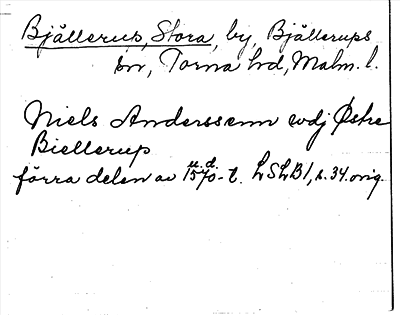 Bjällerup, Stora, by, Bjällerups
sn, Torna hd, Malm. l.
Niels Anderssenn wdj Østre
Biellerup
u.d.
förra delen av 1570-t. LSLB1, s. 34. orig.